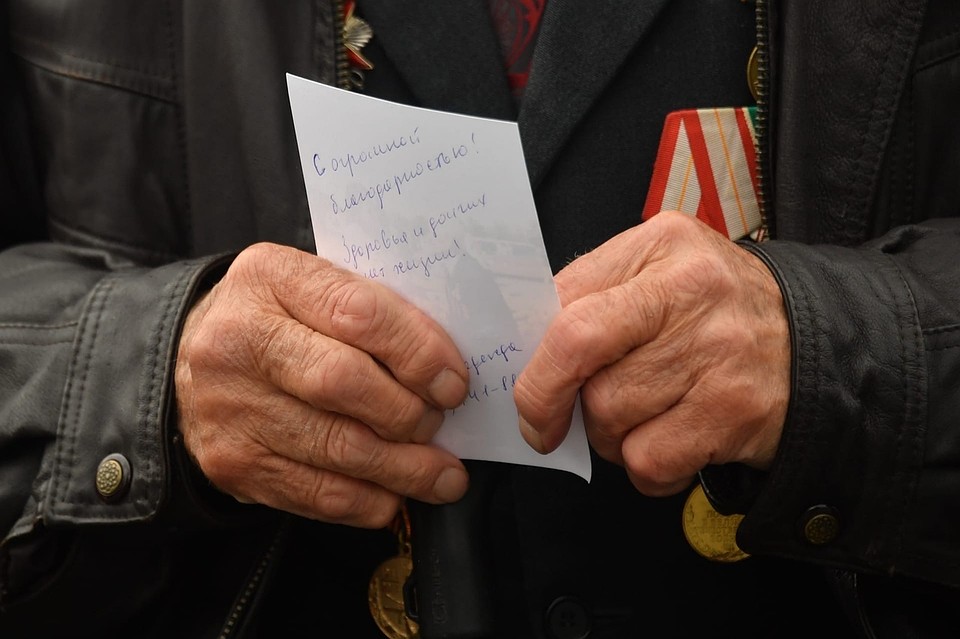 С огромной
благодарностью!
Здоровья и долгих
лет жизни!